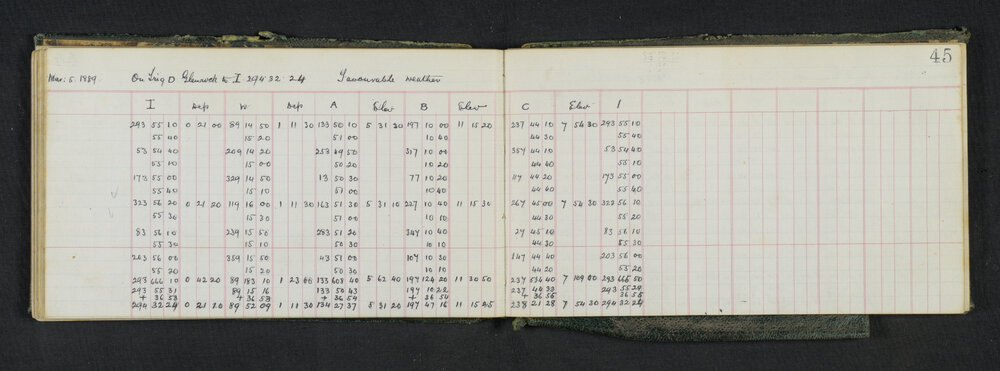 45
Mar: 5. 1889. On Trig D Glenrock to I 294·32·24 Favourable weather
I Dep W Dep A Elev B Elev C Elev I
293 55 10 0 21 00 89 14 50 1 11 30 133 50 10 5 31 30 197 10 00 11 15 20 237 44 10 7 54 30 293 55 10
55 40 15 20 51 00 10 40 44 30 55 40
53 54 40 209 14 20 253 49 50 317 10 00 357 44 10 53 54 40
55 10 15 00 50 20 10 20 44 40 55 10
173 55 00 329 14 50 13 50 30 77 10 20 117 44 20 173 55 00
55 40 15 10 51 00 10 40 44 40 55 40
323 56 20 0 21 20 119 16 00 1 11 30 163 51 30 5 31 10 227 10 40 11 15 30 267 45 00 7 54 30 322 56 10
55 30 15 30 51 00 10 10 44 30 55 20
83 56 10 239 15 50 283 51 20 347 10 40 27 45 10 83 56 10
55 30 15 10 50 30 10 10 44 30 55 30
203 56 00 359 15 50 43 51 00 107 10 30 147 44 40 203 56 00
55 20 15 20 50 30 10 10 44 20 55 20
293 666 10 0 42 20 89 183 10 1 23 00 133 608 40 5 62 40 197 124 20 11 30 50 237 534 40 7 109 00 293 665 50
293 55 31 89 15 16 133 50 43 197 10 22 237 44 33 293 55 29
+ 36 53 + 36 53 + 36 54 + 36 54 + 36 55 36 55
294 32 24 0 21 10 89 52 09 1 11 30 134 27 37 5 31 20 197 47 16 11 15 25 238 21 28 7 54 30 294 32 24